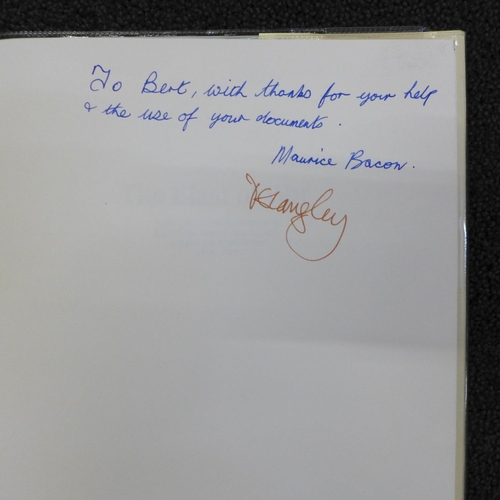 To Bert, with thanks for your help
& the use of your documents.
Maurice Bacon.
KLangley